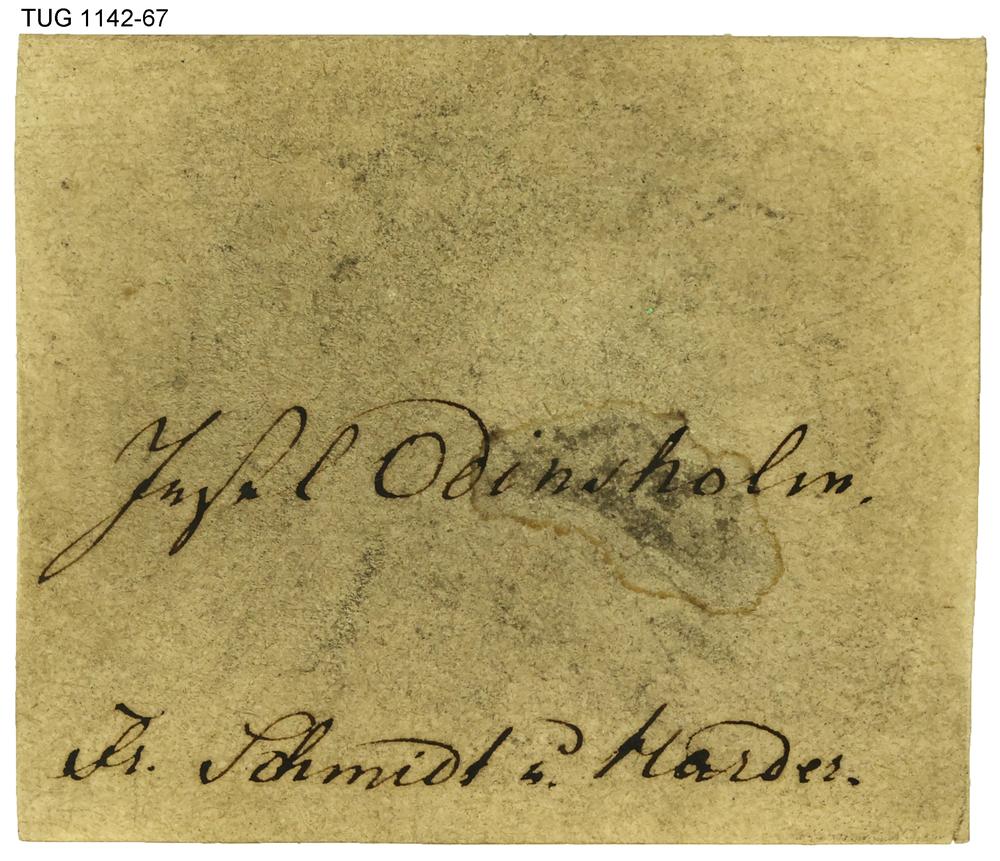 TUG 1142-67
Insel Odinsholm.
Fr. Schmidt u. Harder.